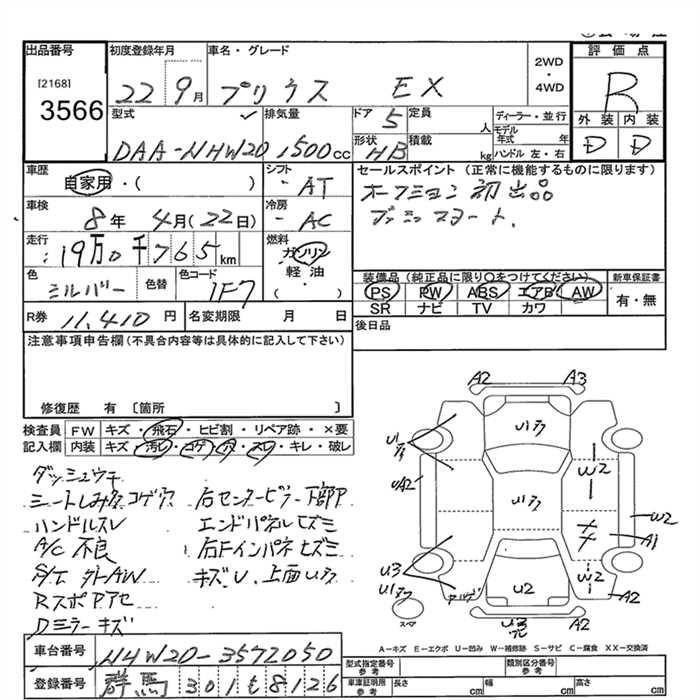 出品番号
[2168]
3566
初度登録年月
22 9月
車名・グレード
プリウス EX
2WD
・
4WD
評価点
R
外装 内装
D D
型式
DAA-NHW20
排気量
1500cc
ドア 5
定員 人
形状 HB
積載 kg
ディーラー・並行
モデル年式 年
ハンドル 左・右
車歴
自家用・( )
シフト
AT
車検
8年 4月(22日)
冷房
AC
走行
19万0千765km
燃料
ガソリン
軽油
( ・ )
色
シルバー
色替
色コード
1F7
R券 11,410円
名変期限 月 日
セールスポイント (正常に機能するものに限ります)
オークション初出品
プッシュスタート.
装備品(純正品に限り○をつけてください)
PS PW ABS エアB AW
SR ナビ TV カワ
新車保証書
有・無
後日品
注意事項申告欄(不具合内容等は具体的に記入して下さい)
修復歴 有 〔箇所 〕
検査員 FW キズ・飛石・ヒビ割・リペア跡・×要
記入欄 内装 キズ・汚し・コゲ・穴・スレ・キレ・破レ
シートしみ多コゲ穴
ハンドルスレ
A/C不良
S/T 外AW
Rスポアセ
Dミラーキズ
右センターピラー下部P
エンドパネルヒズミ
右Fインパネヒズミ
キズ、U、上面Uあり
A2 A3
U2
A1
W2
W2
U3
U2
A2 A2
A-キズ E-エクボ U-凹み W-補修跡 S-サビ C-腐食 XX-交換済
車台番号
NHW20-3572050
登録番号
群馬 301 も 8126
型式指定番号
参考
類別区分番号
参考
車庫証明用
参考
長さ cm
幅 cm
高さ cm